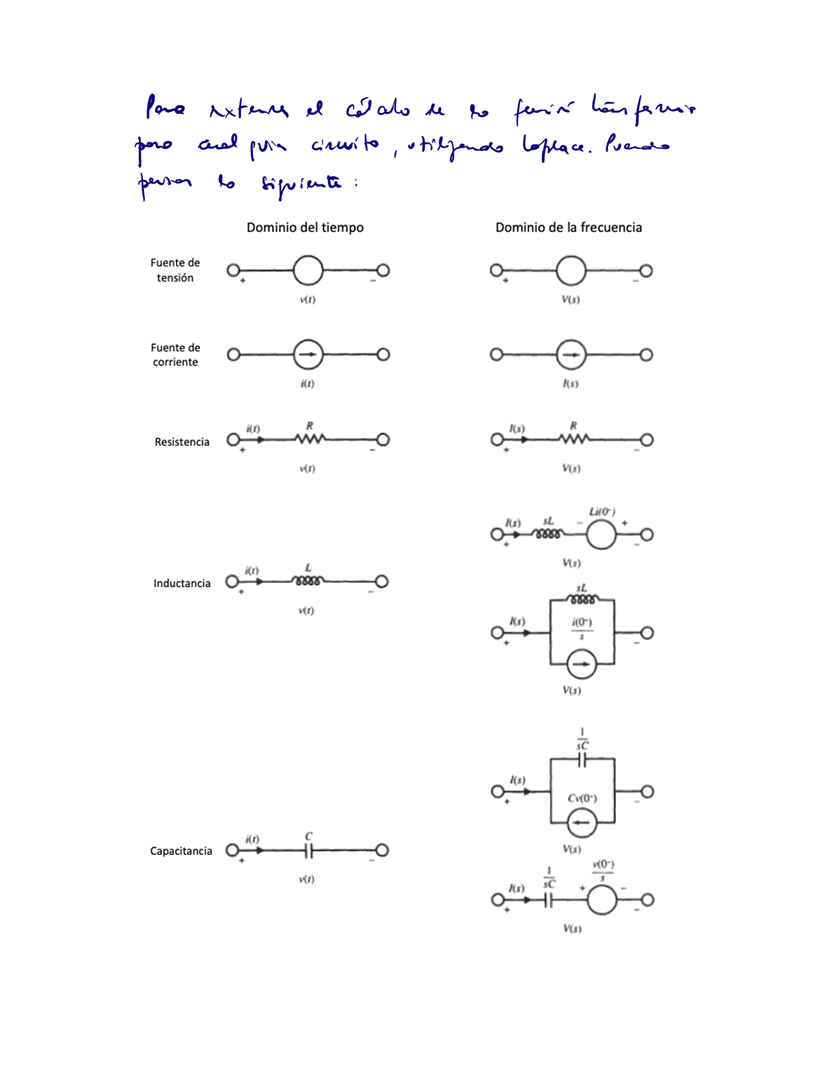 Para extender el cálculo de la función transferencia
para cualquier circuito, utilizando Laplace. Puedo
pensar lo siguiente:
Dominio del tiempo Dominio de la frecuencia
Fuente de
tensión
+ − + −
v(t) V(s)
Fuente de
corriente
i(t) I(s)
Resistencia
i(t) R I(s) R
+ − + −
v(t) V(s)
Li(0⁻)
I(s) sL − +
+ −
V(s)
Inductancia
i(t) L
+ −
v(t)
sL
I(s) i(0⁻)/s
+ −
V(s)
1/sC
I(s)
+ −
Cv(0⁻)
V(s)
Capacitancia
i(t) C
+ −
v(t)
v(0⁻)/s
I(s) 1/sC + −
+ −
V(s)